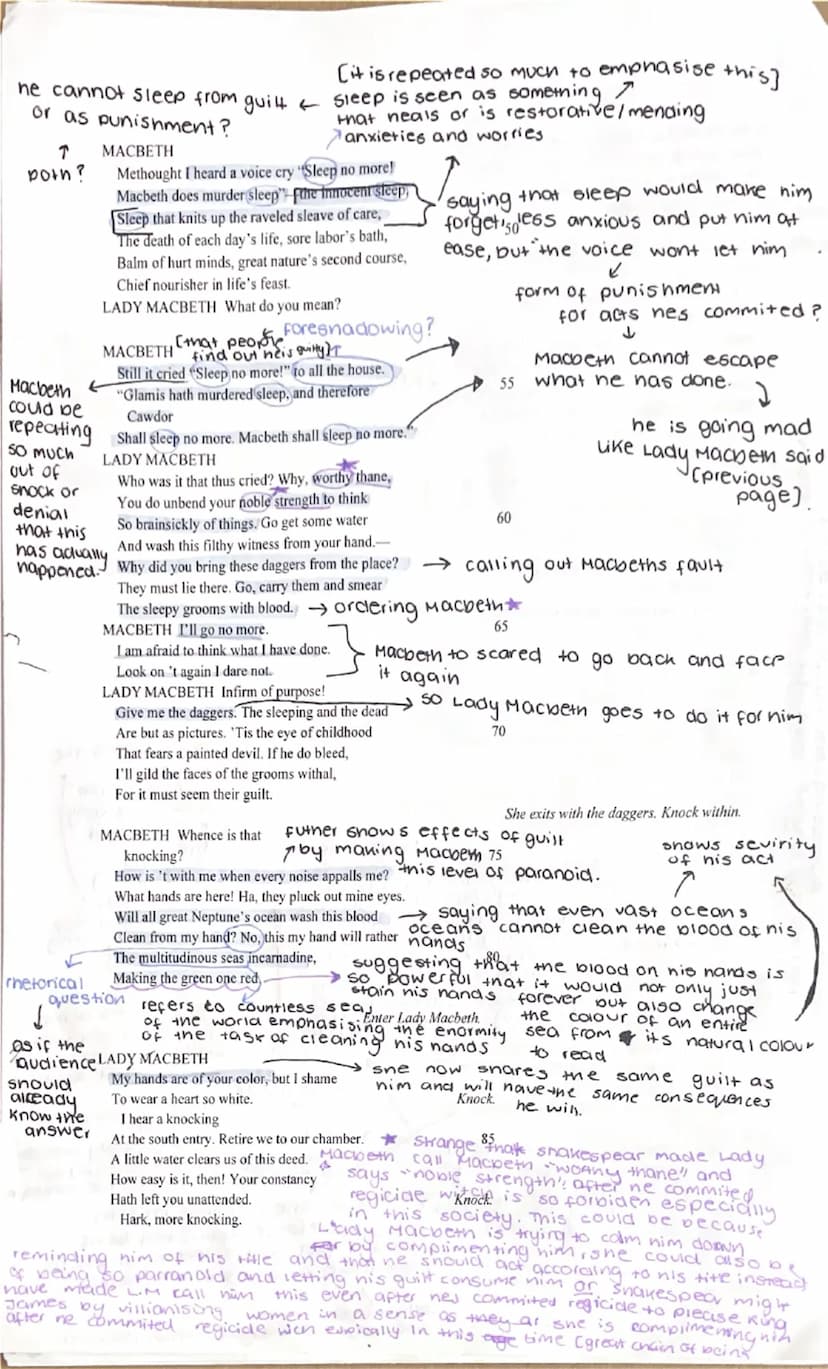 [it is repeated so much to emphasise this]
he cannot sleep from guilt ← sleep is seen as something
or as punishment?
that heals or is restorative/mending
anxieties and worries
both?
MACBETH
Methought I heard a voice cry "Sleep no more!
Macbeth does murder sleep"—[the innocent sleep,
Sleep that knits up the raveled sleave of care,
The death of each day's life, sore labor's bath,
Balm of hurt minds, great nature's second course,
Chief nourisher in life's feast.
50
saying that sleep would make him
forget, less anxious and put him at
ease, but the voice wont let him
form of punishment
for acts hes commited?
Macbeth cannot escape
what he has done.
he is going mad
like Lady Macbeth said
(previous
page].
LADY MACBETH What do you mean?
foreshadowing?
[that people
find out he is guilty]
MACBETH
Still it cried "Sleep no more!" to all the house.
"Glamis hath murdered sleep, and therefore
55
Cawdor
Shall sleep no more. Macbeth shall sleep no more."
Macbeth
could be
repeating
so much
out of
shock or
denial
that this
has actually
happened.
LADY MACBETH
Who was it that thus cried? Why, worthy thane,
You do unbend your noble strength to think
So brainsickly of things. Go get some water
60
And wash this filthy witness from your hand.—
Why did you bring these daggers from the place?
→ calling out Macbeths fault
They must lie there. Go, carry them and smear
The sleepy grooms with blood.
→ ordering Macbeth★
MACBETH I'll go no more.
65
I am afraid to think what I have done.
Look on 't again I dare not.
Macbeth to scared to go back and face
it again
LADY MACBETH Infirm of purpose!
Give me the daggers. The sleeping and the dead
so Lady Macbeth goes to do it for him
Are but as pictures. 'Tis the eye of childhood
70
That fears a painted devil. If he do bleed,
I'll gild the faces of the grooms withal,
For it must seem their guilt.
She exits with the daggers. Knock within.
MACBETH Whence is that
knocking?
75
futher shows effects of guilt
by making Macbeth
this level of paranoid.
shows sevirity
of his act
How is 't with me when every noise appalls me?
What hands are here! Ha, they pluck out mine eyes.
Will all great Neptune's ocean wash this blood
Clean from my hand? No, this my hand will rather
→ saying that even vast oceans
oceans cannot clean the blood of his
hands
80
The multitudinous seas incarnadine,
Making the green one red.
suggesting that the blood on his hands is
so powerful that it would not only just
stain his hands forever but also change
the colour of an entire
sea from its natural colour
to read
rhetorical
question
as if the
audience
should
already
know the
answer
refers to countless seas
of the world emphasising the enormity
of the task of cleaning his hands
Enter Lady Macbeth.
LADY MACBETH
My hands are of your color, but I shame
To wear a heart so white.
Knock.
she now shares the same guilt as
him and will have the same consequences
he will.
I hear a knocking
At the south entry. Retire we to our chamber.
85
A little water clears us of this deed.
How easy is it, then! Your constancy
Hath left you unattended.
Knock.
Hark, more knocking.
★ Strange that shakespear made Lady
Macbeth call Macbeth "worthy thane" and
says "noble strength", after he commited
regicide witch is so forbiden especially
in this society. This could be because
Lady Macbeth is trying to calm him down
by complimenting him, she could also be
reminding him of his title and that he should act according to his title instead
of being so parranoid and letting his guilt consume him or shakespear might
have made L.M call him this even after hes commited regicide to please King
James by villianising women in a sense as they ar she is complimenting him
after he commited regicide wich in this time (great chain of being